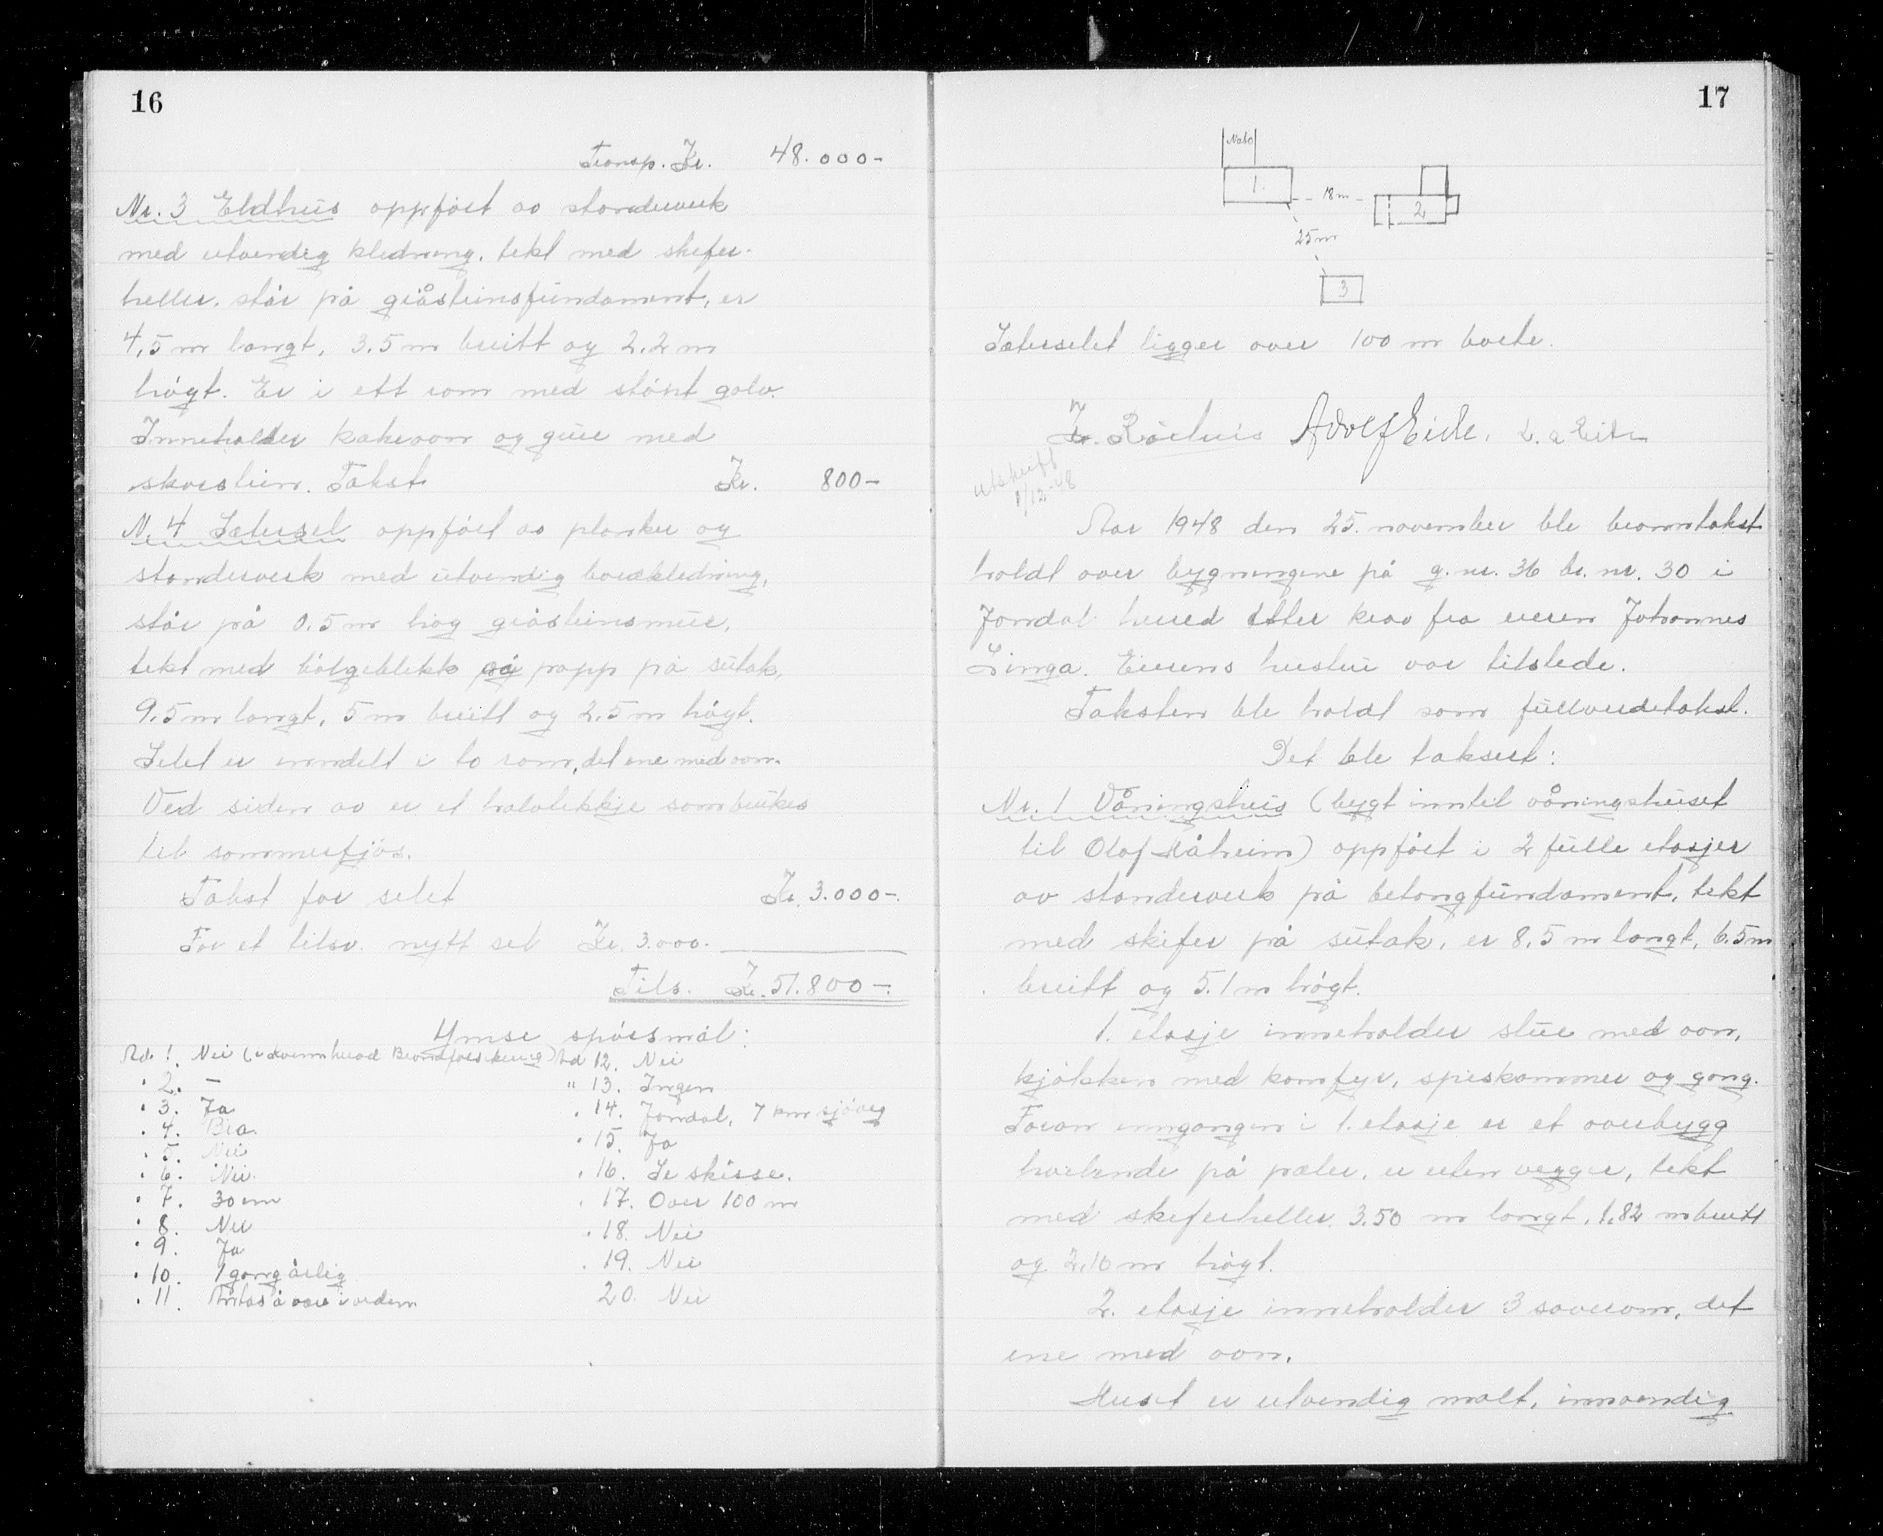 16
Transp. Kr. 48.000-
Nr. 3 Eldhus oppført av standerverk
med utvendig kledning, tekt med skifer-
heller, står på gråsteinsfundament, er
4,5 m langt, 3.5 m breitt og 2.2 m
høgt. Er i ett rom med støpt golv.
Inneholder kakeovn og grue med
skorstein. Takst Kr. 800-
N. 4 Sætersel oppført av planker og
standerverk med utvendig bordkledning,
står på 0.5 m høg gråsteinsmur,
tekt med bølgeblekk og papp på sutak,
9.5 m langt, 5 m breitt og 2.5 m høgt.
Selet er inndelt i to rom, det ene med ovn.
Ved siden av er et halvtekkje som brukes
til sommerfjøs.
Takst for selet Kr. 3.000-
For et tilsv. nytt sel Kr. 3.000.
Tils. Kr. 51.800-
Ymse spørsmål:
Ad. 1. Nei
" 2. -
" 3. Ja
" 4. Bra
" 5. Nei
" 6. Nei.
" 7. 30 cm
" 8. Nei
" 9. Ja
" 10. 1 gang årlig
" 11. Antas å være i orden
Ad 12. Nei
" 13. Ingen
" 14. Jondal, 7 km sjøveg
" 15. Ja
" 16. Se skisse.
" 17. Over 100 m
" 18. Nei
" 19. Nei
20. Nei
17
Nabo
1.
18 m
2
25 m
3
Sæterselet ligger over 100 m borte.
Adolf Eide.
Utskrift
1/12-48
Aar 1948 den 25. november ble branntakst
holdt over bygningene på g.nr. 36 br.nr. 30 i
Jondal herred etter krav fra eieren Johannes
Linga. Eierens hustru var tilstede.
Taksten ble holdt som fullverdetakst.
Det ble taksert:
Nr. 1 Våningshus (bygt inntil våningshuset
til Olaf Håheim) oppført i 2 fulle etasjer
av standerverk på betongfundament, tekt
med skifer på sutak, er 8,5 m langt, 6.5 m
breitt og 5.1 m høgt.
1. etasje inneholder stue med ovn,
kjøkken med komfyr, spiskammer og gang.
Foran inngangen i 1. etasje er et overbygg
hvilende på pæler, er uten vegger, tekt
med skiferheller, 3.50 m langt, 1.82 m breitt
og 2,10 m høgt.
2. etasje inneholder 3 soverom, det
ene med ovn.
Huset er utvendig malt, innvendig